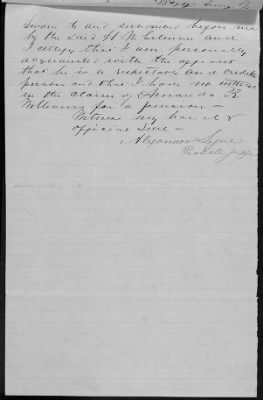 Sworn to and subscribed before me
by the said H N and
I certify that I am personally
acquainted with the affiant
that he is a respectable and credible
person and that I have no interest
in the claim of Amanda R
for a pension -
Witness my hand &
official seal -
Alexander
Probate Judge